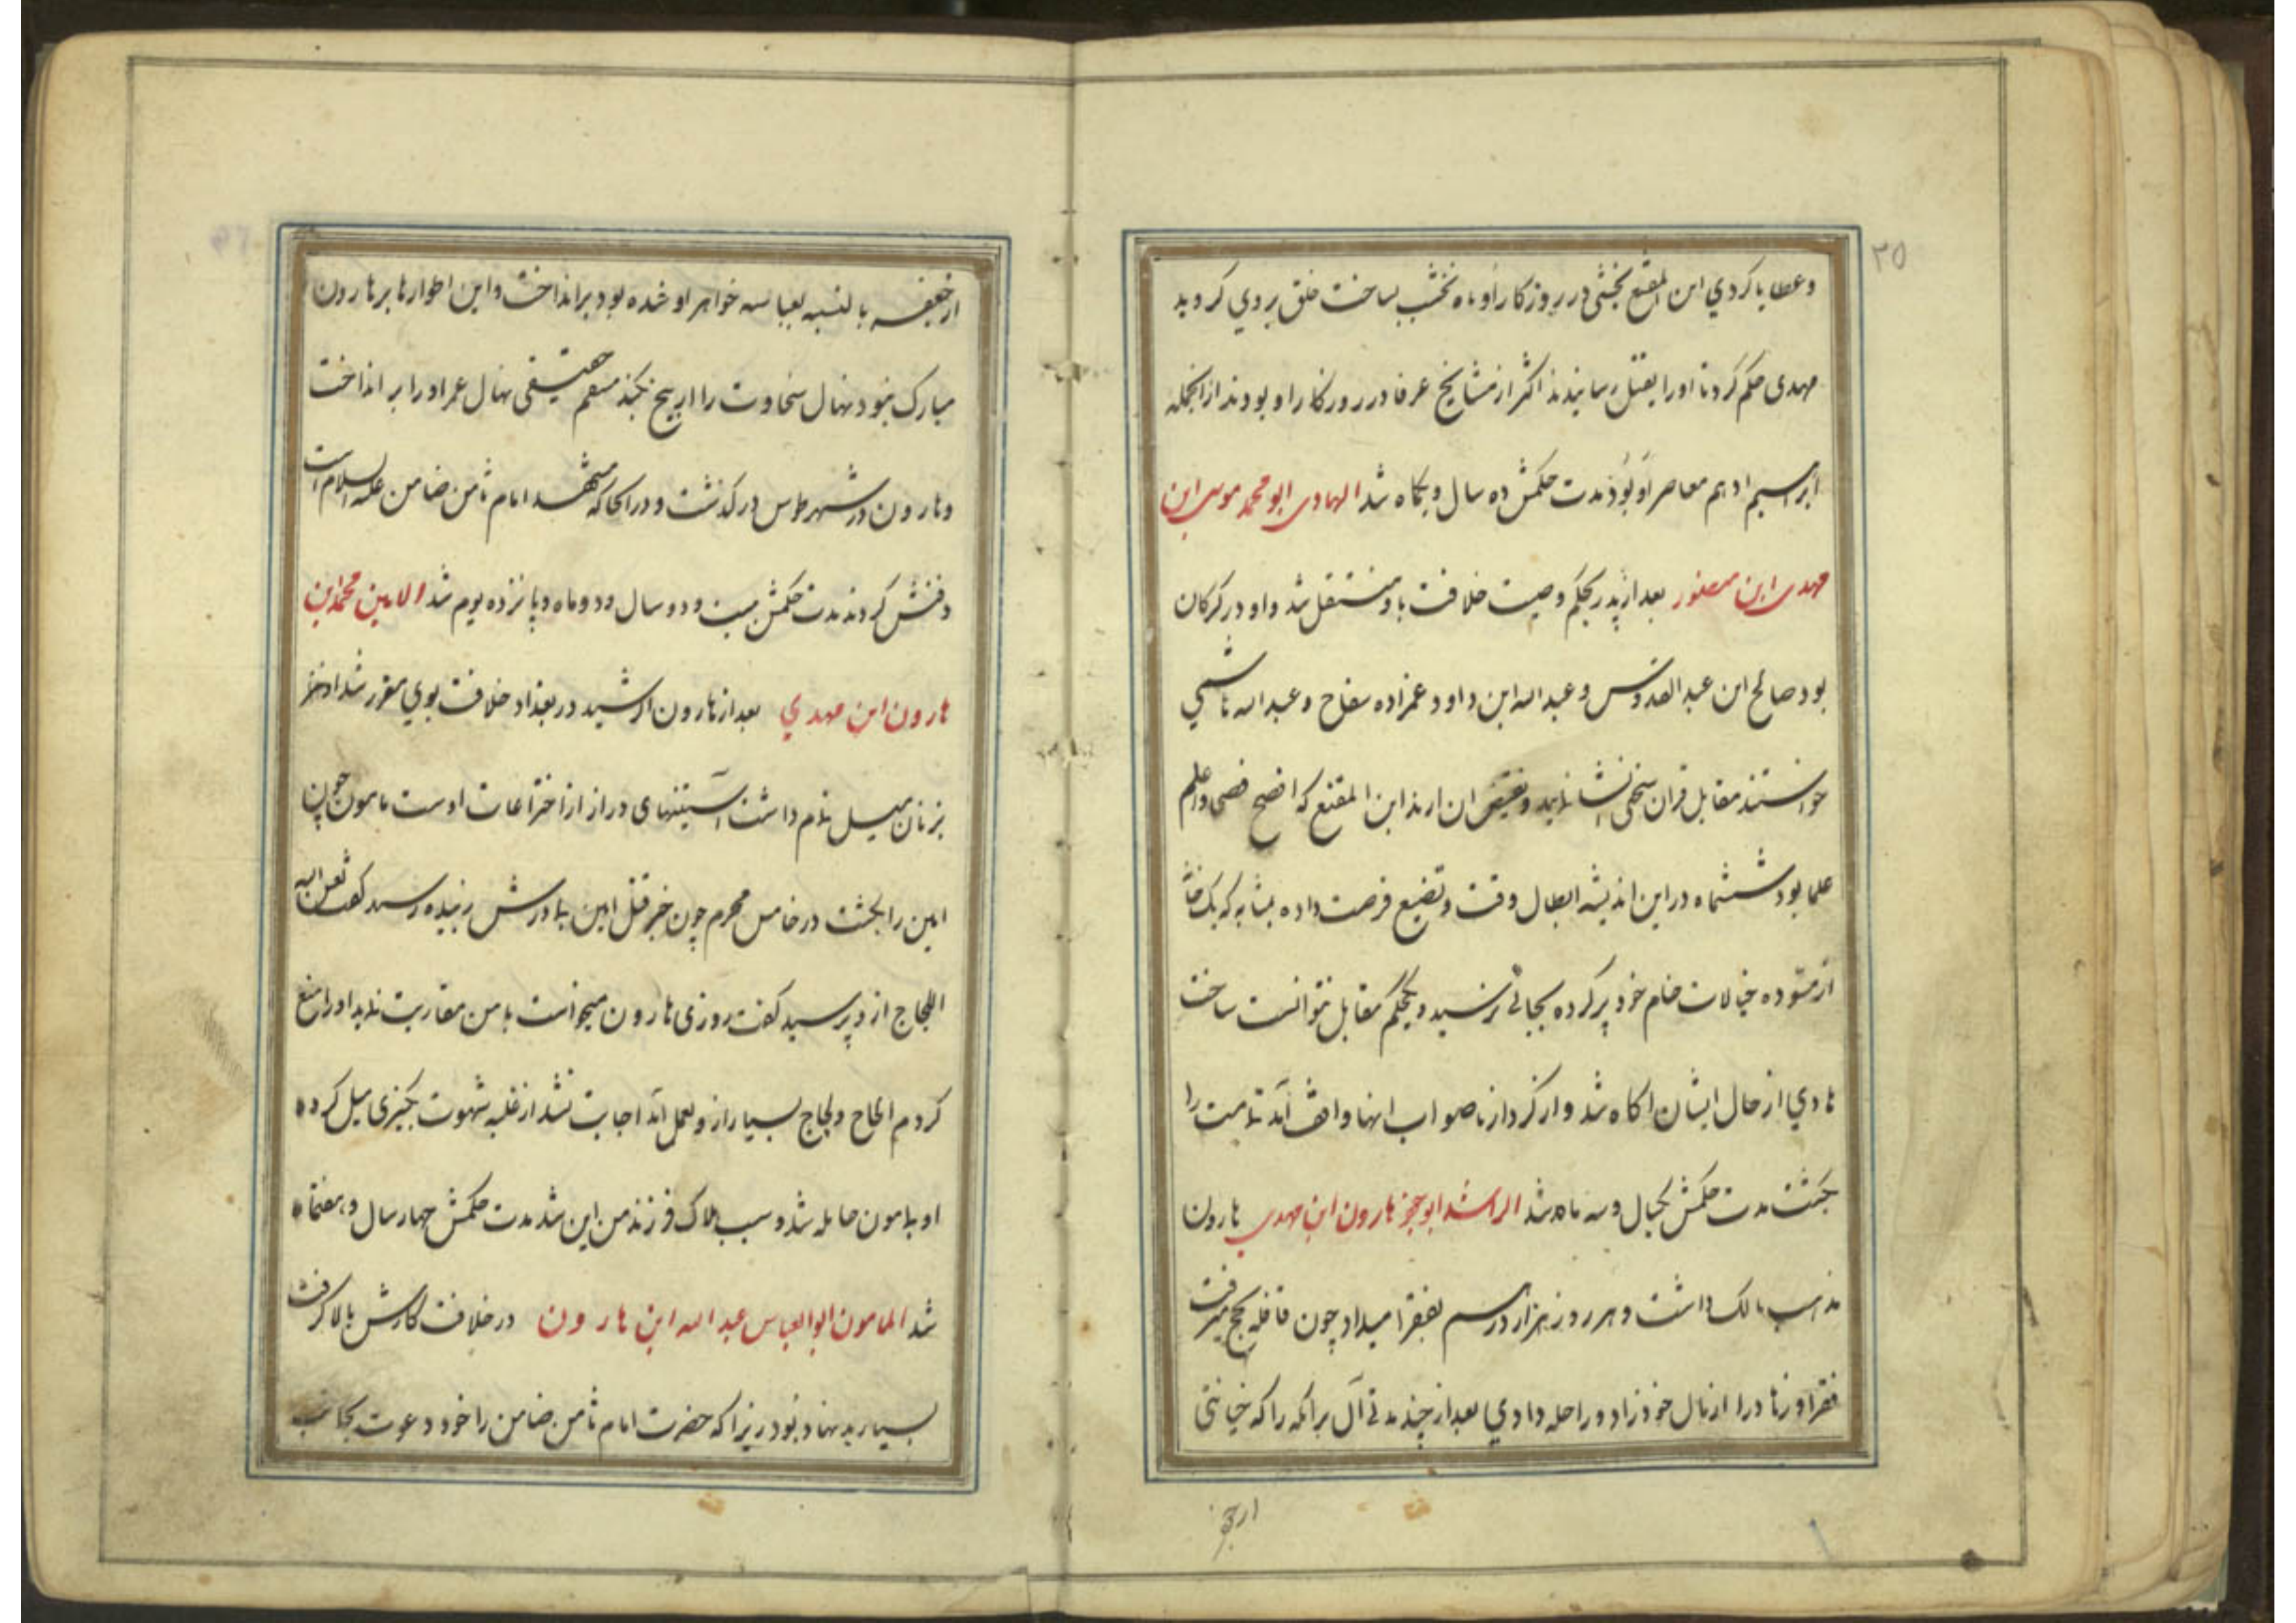 ۲۵
وعطایا کردي ابن المقنع نخشبی در روزکار او ماه نخشب بساخت خلق بروي کرویدند
مهدی حکم کرد تا اورا بقتل رسانیدند اکثر از مشایخ عرفا در روزکار او بودند ازانجمله
ابراهیم ادهم معاصر او بود مدت حکمش ده سال و یکماه شد الهادی ابو محمد موسی ابن
مهدی ابن منصور بعد از پدر بحکم وصیت خلافت باو منتقل شد و او در کرکان
بود صالح ابن عبد القدوس و عبد الله ابن داود عمزاده سفاح و عبد الله هاشمي
خواستند مقابل قران سخنی انشا نمایند و نقیض ان ارند ابن المقنع که افصح فصحا و اعلم
علما بود ششماه در این اندیشه ابطال وقت و تضیع فرصت داده بمثابه که یک خانه
از مسوده خیالات خام خود پر کرده بجائی نرسید و یحکم مقابل نتوانست ساخت
هادي از حال ایشان اکاه شد و از کردار ناصواب انها واقف آمد تمامت را
بکشت مدت حکمش یکسال و سه ماه شد الرشد ابو جعفر هارون ابن مهدي هارون
مذهب مالک داشت و هر روز هزار درهم بفقرا میداد چون قافله بحج میرفت
فقرا و زهاد را از مال خود زاد و راحله دادي بعد از چند مدتی آل برامکه را که خیانتی
از جعفر
از جعفر بالنسبه بعباسه خواهر او شده بود برانداخت و این اطوارها بر هارون
مبارک نبود نهال سخاوت را از بیخ بکند منعم حقیقی نهال عمر او را بر انداخت
و هارون در شهر طوس درکذشت و در انجا که مشهد امام ثامن ضامن علیه السلام است
دفنش کردند مدت حکمش بیست و دو سال و دو ماه و پانزده یوم شد الامین محمد ابن
هارون ابن مهدي بعد از هارون الرشید در بغداد خلافت بوي مقرر شد او نیز
بزنان میل تمام داشت آستینهای دراز از اختراعات اوست مامون چون
امین را بکشت در خامس محرم چون خبر قتل امین بمادرش زبیده رسید کفت لعن الله
اللجاج از و پرسید کفت روزی هارون میخواست با من مقاربت نماید او را منع
کردم الحاح و لجاج بسیار از و بعمل آمد اجابت نشد از غلبه شهوت بکنیزی میل کرده
او بمامون حامله شد و سبب هلاک فرزند من این شد مدت حکمش چهار سال و هفتماه
شد المامون ابو العباس عبد الله ابن هارون در خلافت کارش بالا کرفت
بسیار بد نهاد بود زیرا که حضرت امام ثامن ضامن را خود دعوت بجانب